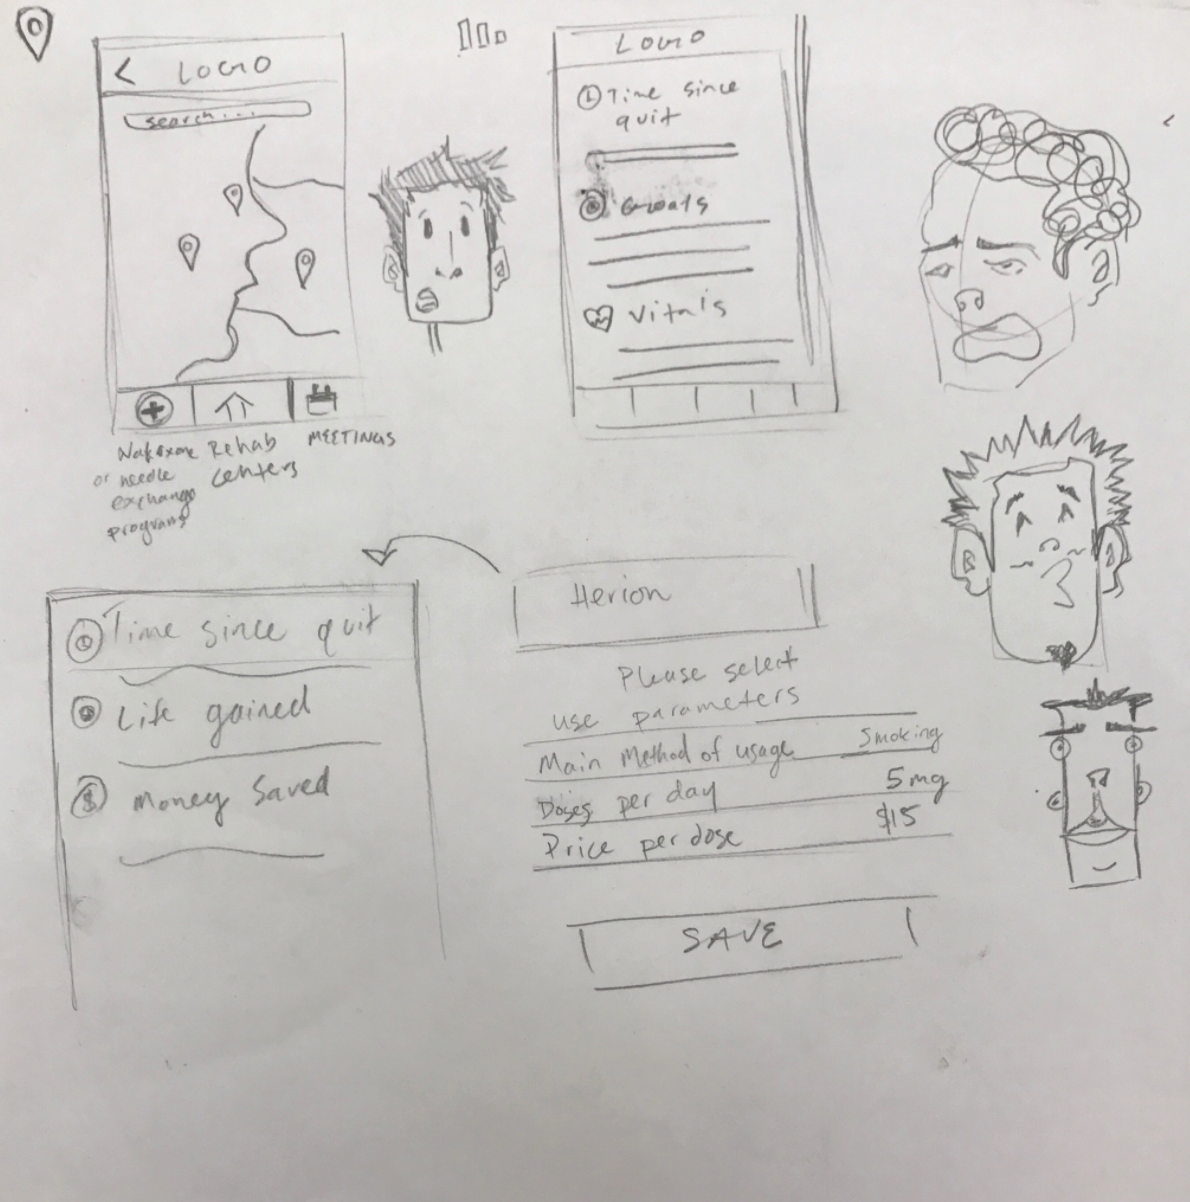 < LOGO
search...
Naloxone
or needle
exchange
programs
Rehab
centers
MEETINGS
LOGO
Time since
quit
Goals
Vitals
Time since quit
Life gained
$ Money Saved
Herion
Please select
use parameters
Main Method of usage Smoking
Doses per day 5mg
Price per dose $15
SAVE